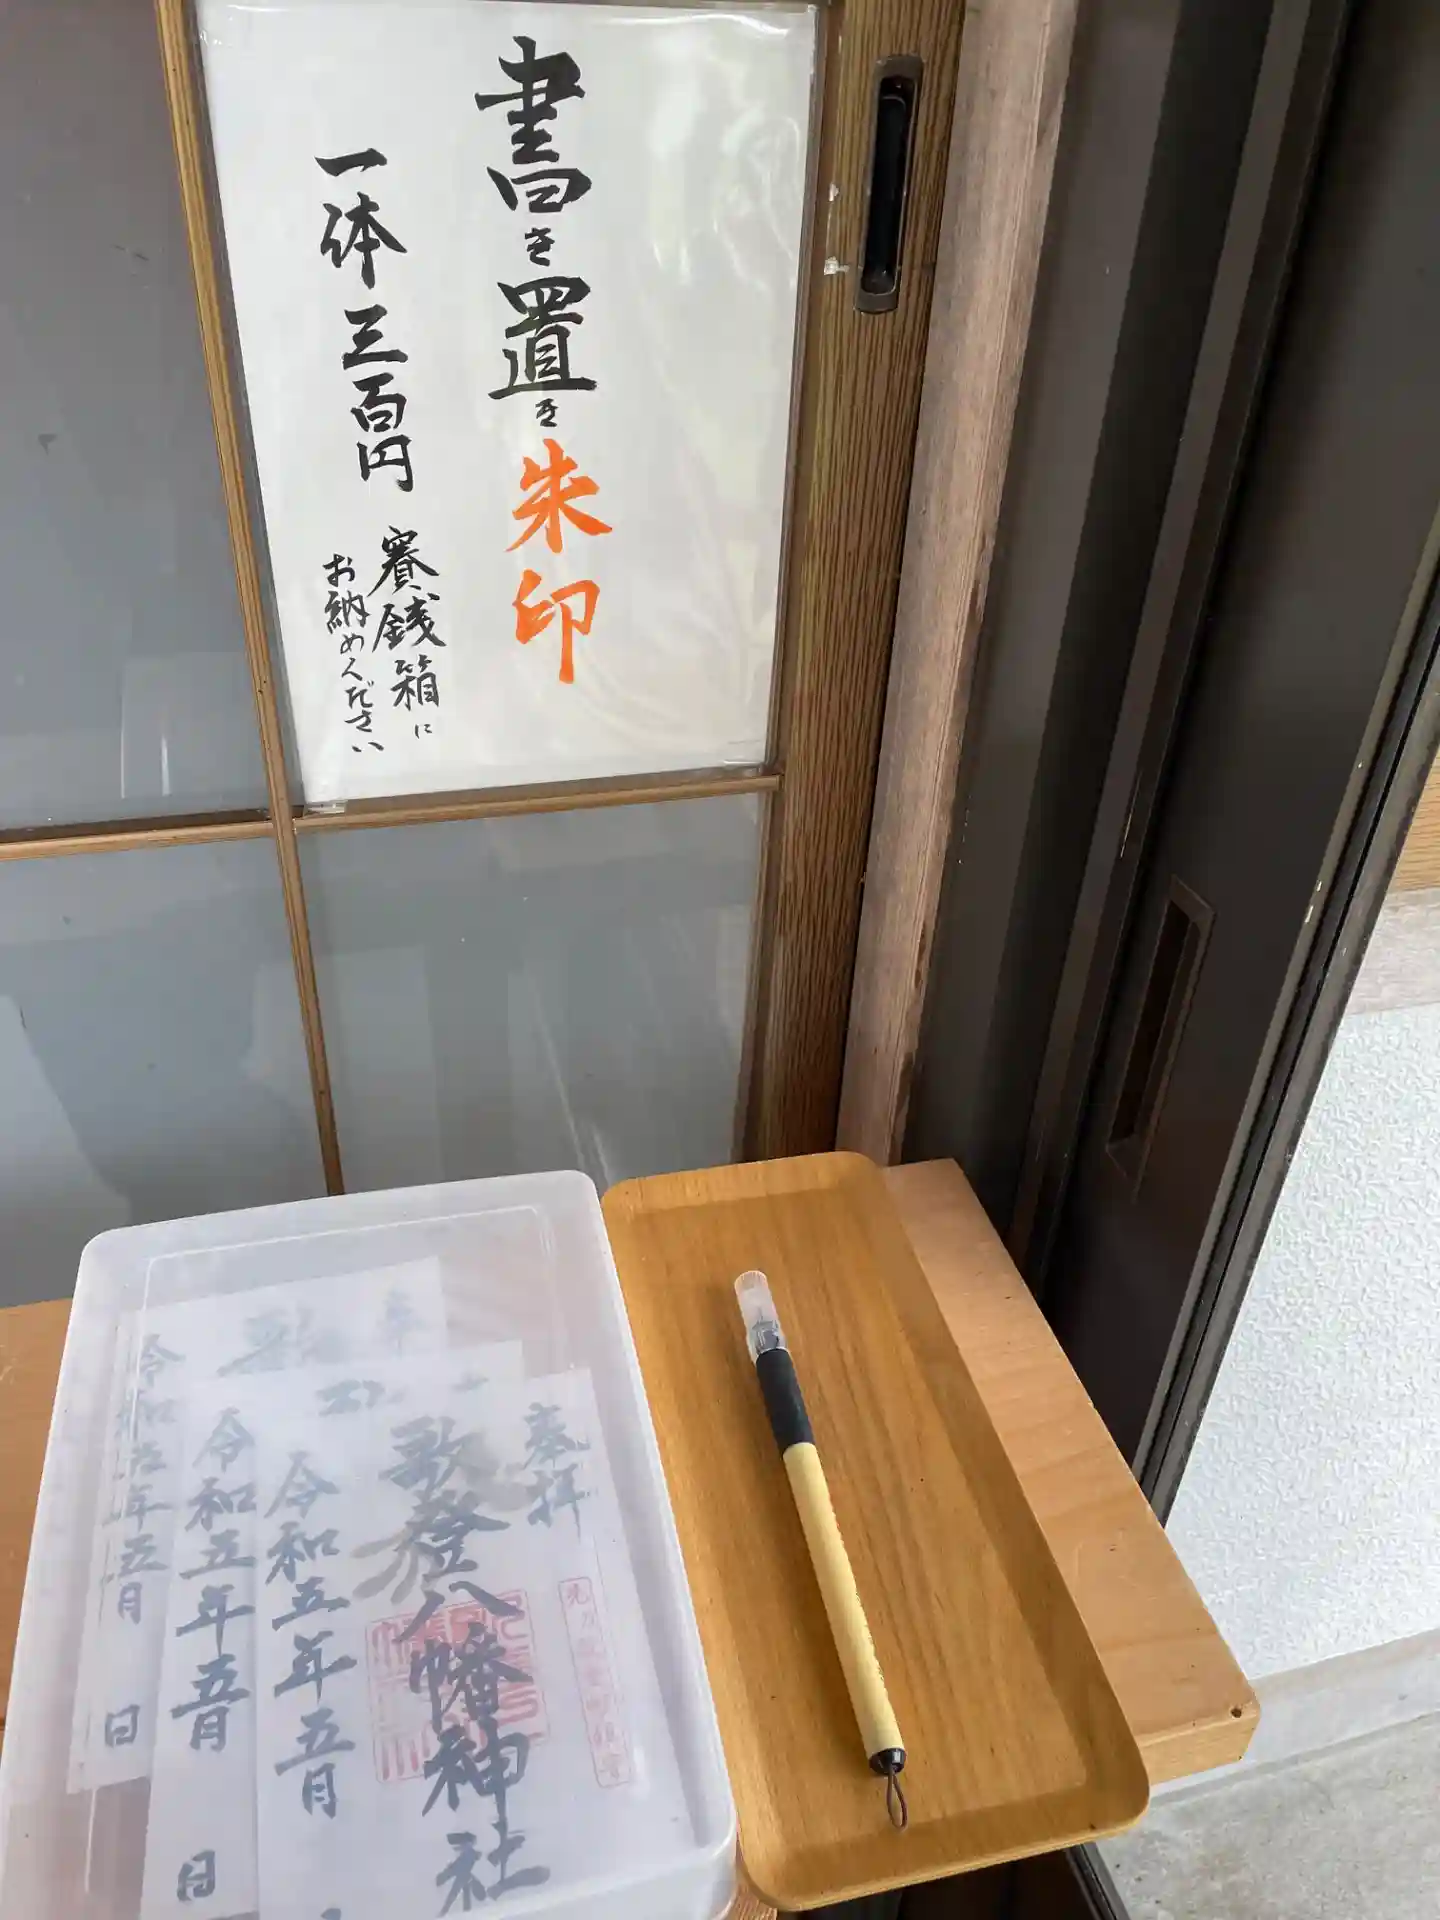 書き置き朱印
一体三百円
賽銭箱に
お納めください
奉拝
歌登八幡神社
令和五年五月
令和五年五月
日
令和五年五月
日